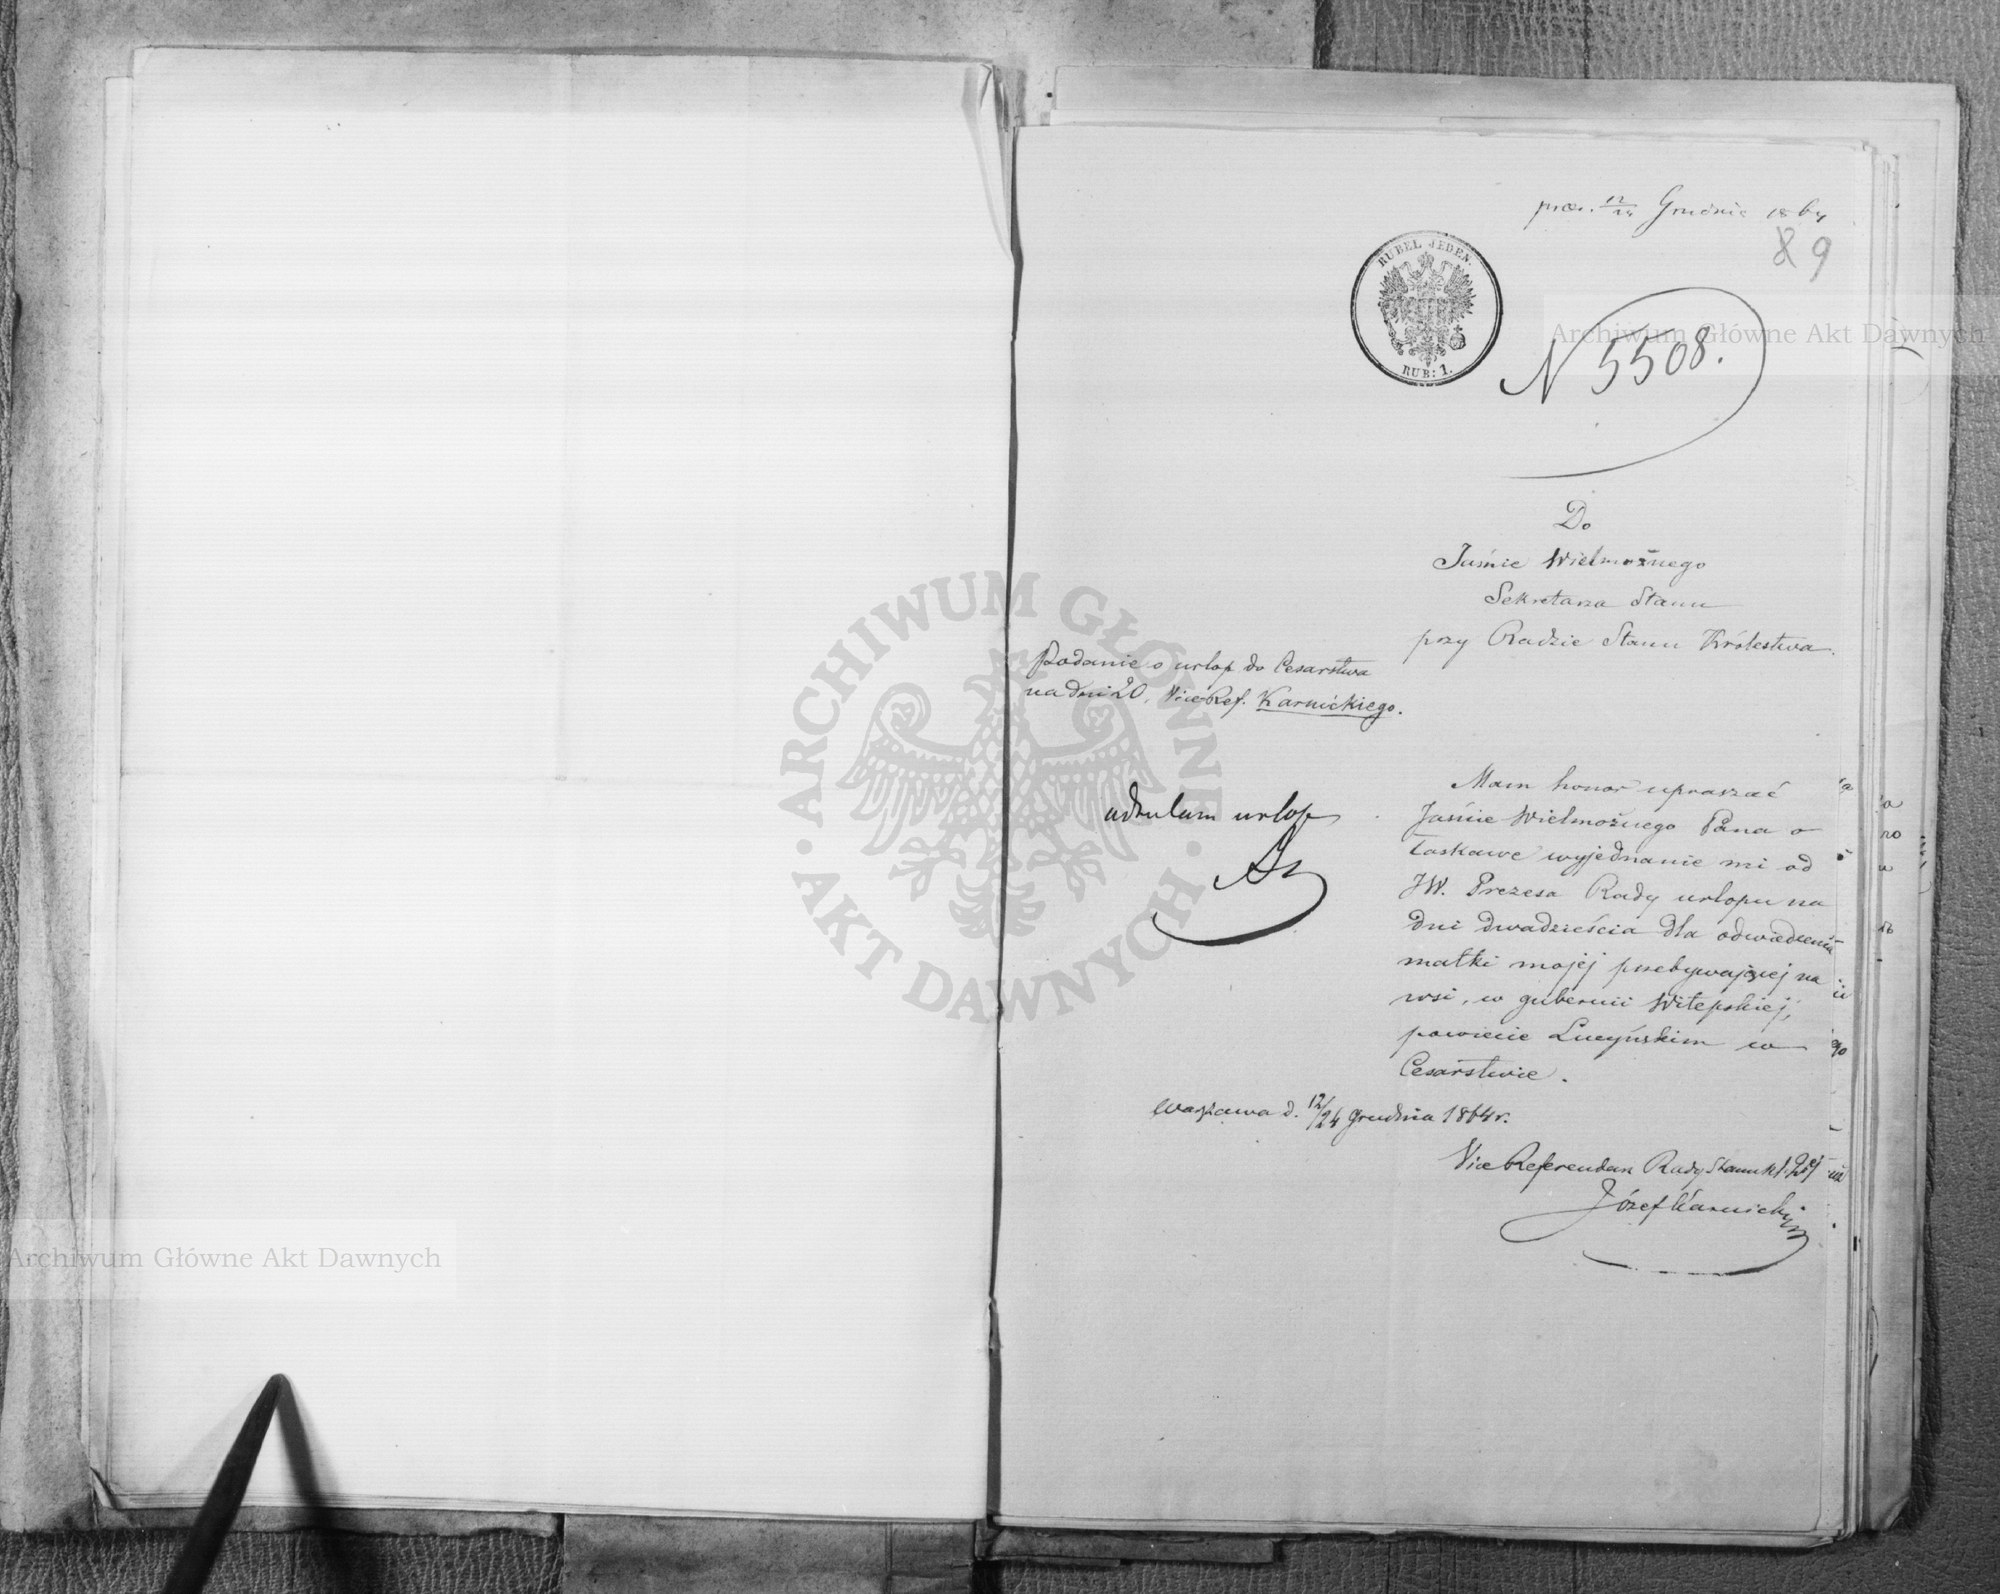 præs. 12/24 Grudnia 1864
89
RUBEL JEDEN.
RUB: 1.
N 5508.
Do
Jaśnie Wielmożnego
Sekretarza Stanu
przy Radzie Stanu Królestwa.
Podanie o urlop do Cesarstwa
na dni 20, Vice Ref. Karnickiego.
Mam honor upraszać
Jaśnie Wielmożnego Pana o
łaskawe wyjednanie mi od
JW. Prezesa Rady urlopu na
dni dwadzieścia dla odwiedzenia
matki mojej przebywającej na
wsi, w gubernii Witepskiej,
powiecie Lucyńskim w
Cesarstwie.
urlop
Warszawa d. 12/24 Grudnia 1864 r.
Vice Referendarz Rady Stanu
Józef Karnicki
ARCHIWUM GŁÓWNE AKT DAWNYCH
Archiwum Główne Akt Dawnych
Archiwum Główne Akt Dawnych